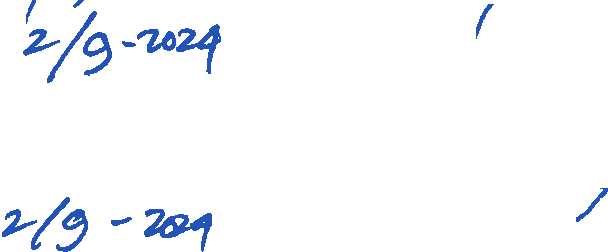 2/9-2024
2/9-2024